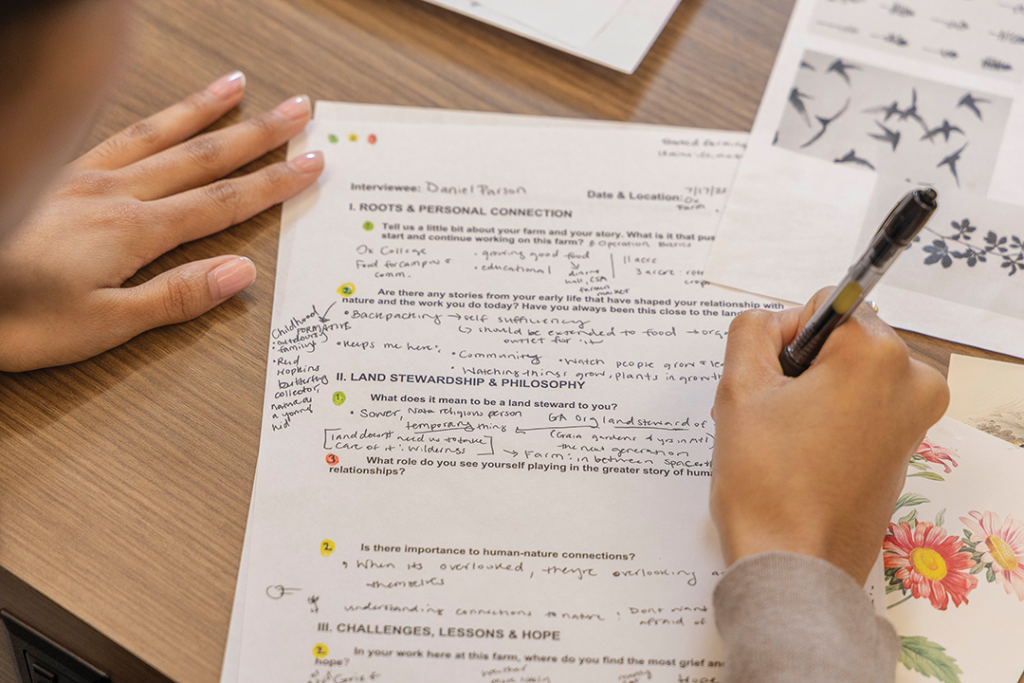 Interviewee: Daniel Parson
Date & Location: 7/17/
Ox
Farm
I. ROOTS & PERSONAL CONNECTION
1. Tell us a little bit about your farm and your story. What is it that
start and continue working on this farm? * Operation Basics
Ox College
Food for campus &
comm.
• growing good food
• educational
dining
hall, CSA
farmers
market
11 acre
3 acre
crops
2. Are there any stories from your early life that have shaped your relationship with
nature and the work you do today? Have you always been this close to the land
• Backpacking → self sufficiency
↳ should be extended to food → org
outlet for it
• Keeps me here:
• Community
• Watch people grow &
• Watching things grow, plants in growth
Childhood
FORMATIVE
• outdoorsy
family
• Reid
Hopkins
butterfly
collector,
kid
II. LAND STEWARDSHIP & PHILOSOPHY
1. What does it mean to be a land steward to you?
• Sower, Not a religious person
temporary thing
GA Org land steward of
[land doesn't need us to take
care of it: Wilderness]
(Gaia gardens 4 yrs in ATL)
the next generation
→ Farm: in between space
3. What role do you see yourself playing in the greater story of
relationships?
2. Is there importance to human-nature connections?
• When its overlooked, they're overlooking
themselves
understanding connections to nature : Don't want
afraid of
III. CHALLENGES, LESSONS & HOPE
2. In your work here at this farm, where do you find the most grief
hope?
Grief
weather
Hope